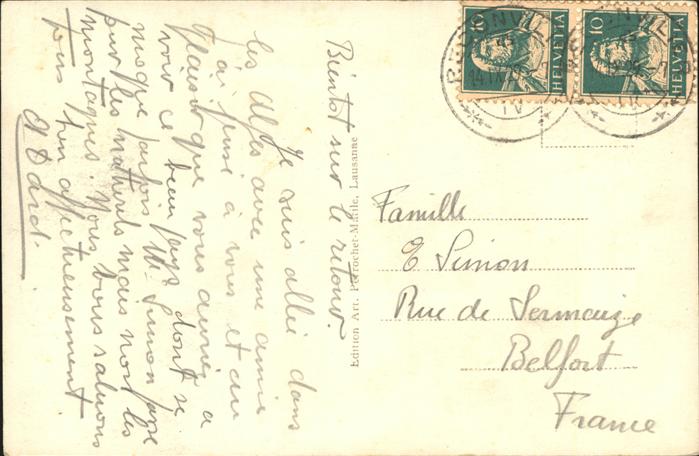 Bientôt sur le retour.
Je suis allée dans
les Alpes avec une amie
j'ai pensé à vous et au
plaisir que vous auriez à
voir ce beau pays dont se
moque parfois Mr. Simon
pour les naturels mais non les
montagnes. Nous vous saluons
tous bien affectueusement
Edition Art. Perrochet-Matile, Lausanne
10 HELVETIA
10 HELVETIA
Famille
E Simon
Rue de Sermaize
Belfort
France